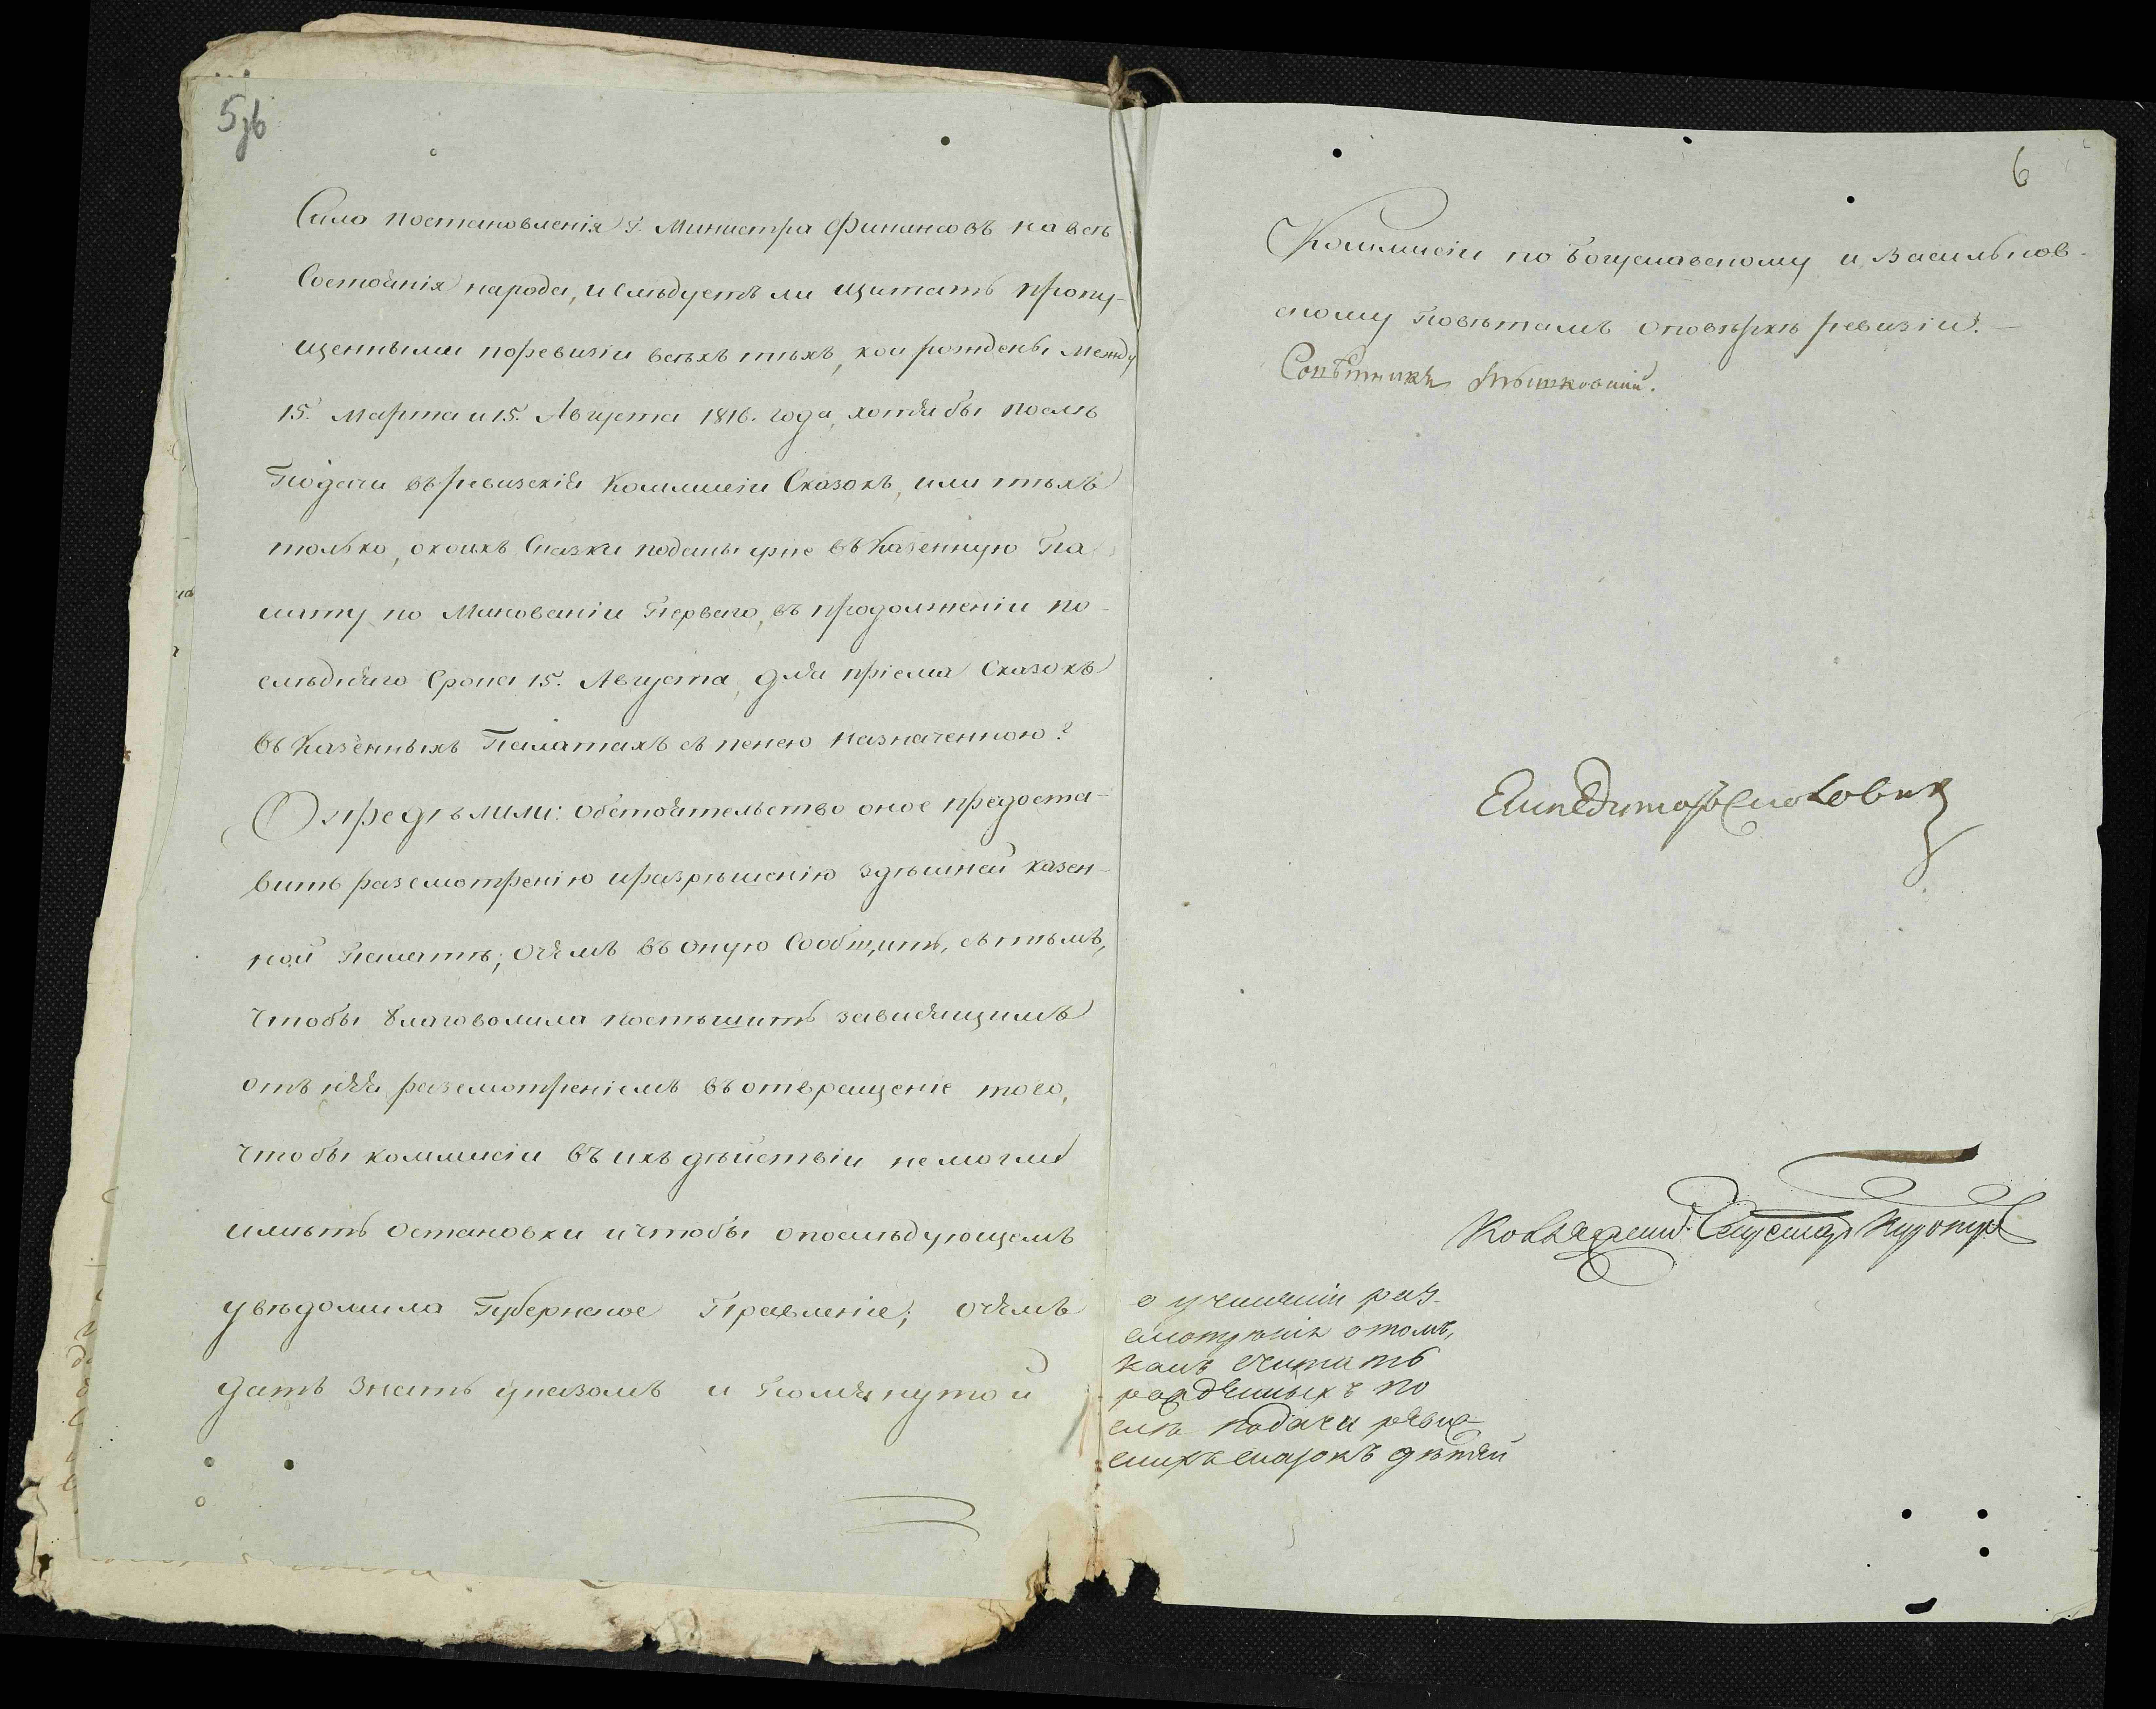 5зв
Сила постановленія Г. Министра Финансовъ на всѣ
Состоянія народа, и слѣдуетъ ли щитать пропу-
щенными поревизіи всѣхъ тѣхъ, кои рождены между
15. Марта и 15. Августа 1816. года, хотя бы послѣ
Подачи въ ревизскія Коммисіи Сказокъ, или тѣхъ
только, окоихъ Сказки поданы уже въ Казенную Па
лату по Минованіи Перваго, въ продолженіи по-
слѣдняго Срока 15. Августа, для пріема Сказокъ
въ Казенныхъ Палатахъ съ пенею назначенною?
Опредѣлили: Обстоятельство оное предоста-
вить разсмотренію иразрѣшенію здѣшней казен-
ной Палатѣ; Очемъ въ оную Сообщить, сътѣмъ,
Чтобы благоволила поспѣшить зависящимъ
отъ нея разсмотреніемъ въ отвращеніе того,
Чтобы коммисіи въ ихъ дѣйствіи не могли
имѣть Остановки и чтобы опослѣдующемъ
увѣдомила Губернское Правленіе; Очемъ
дать знать указомъ и Помянутой
6
Коммисіи по Богуславскому и Васильков-
скому Повѣтамъ оповѣркѣ ревизіи. —
Совѣтникъ
о учиненіи раз-
смотрѣнія отомъ,
какъ Считать
рожденныхъ по
слѣ подачи ревиз-
скихъ сказокъ дѣтей